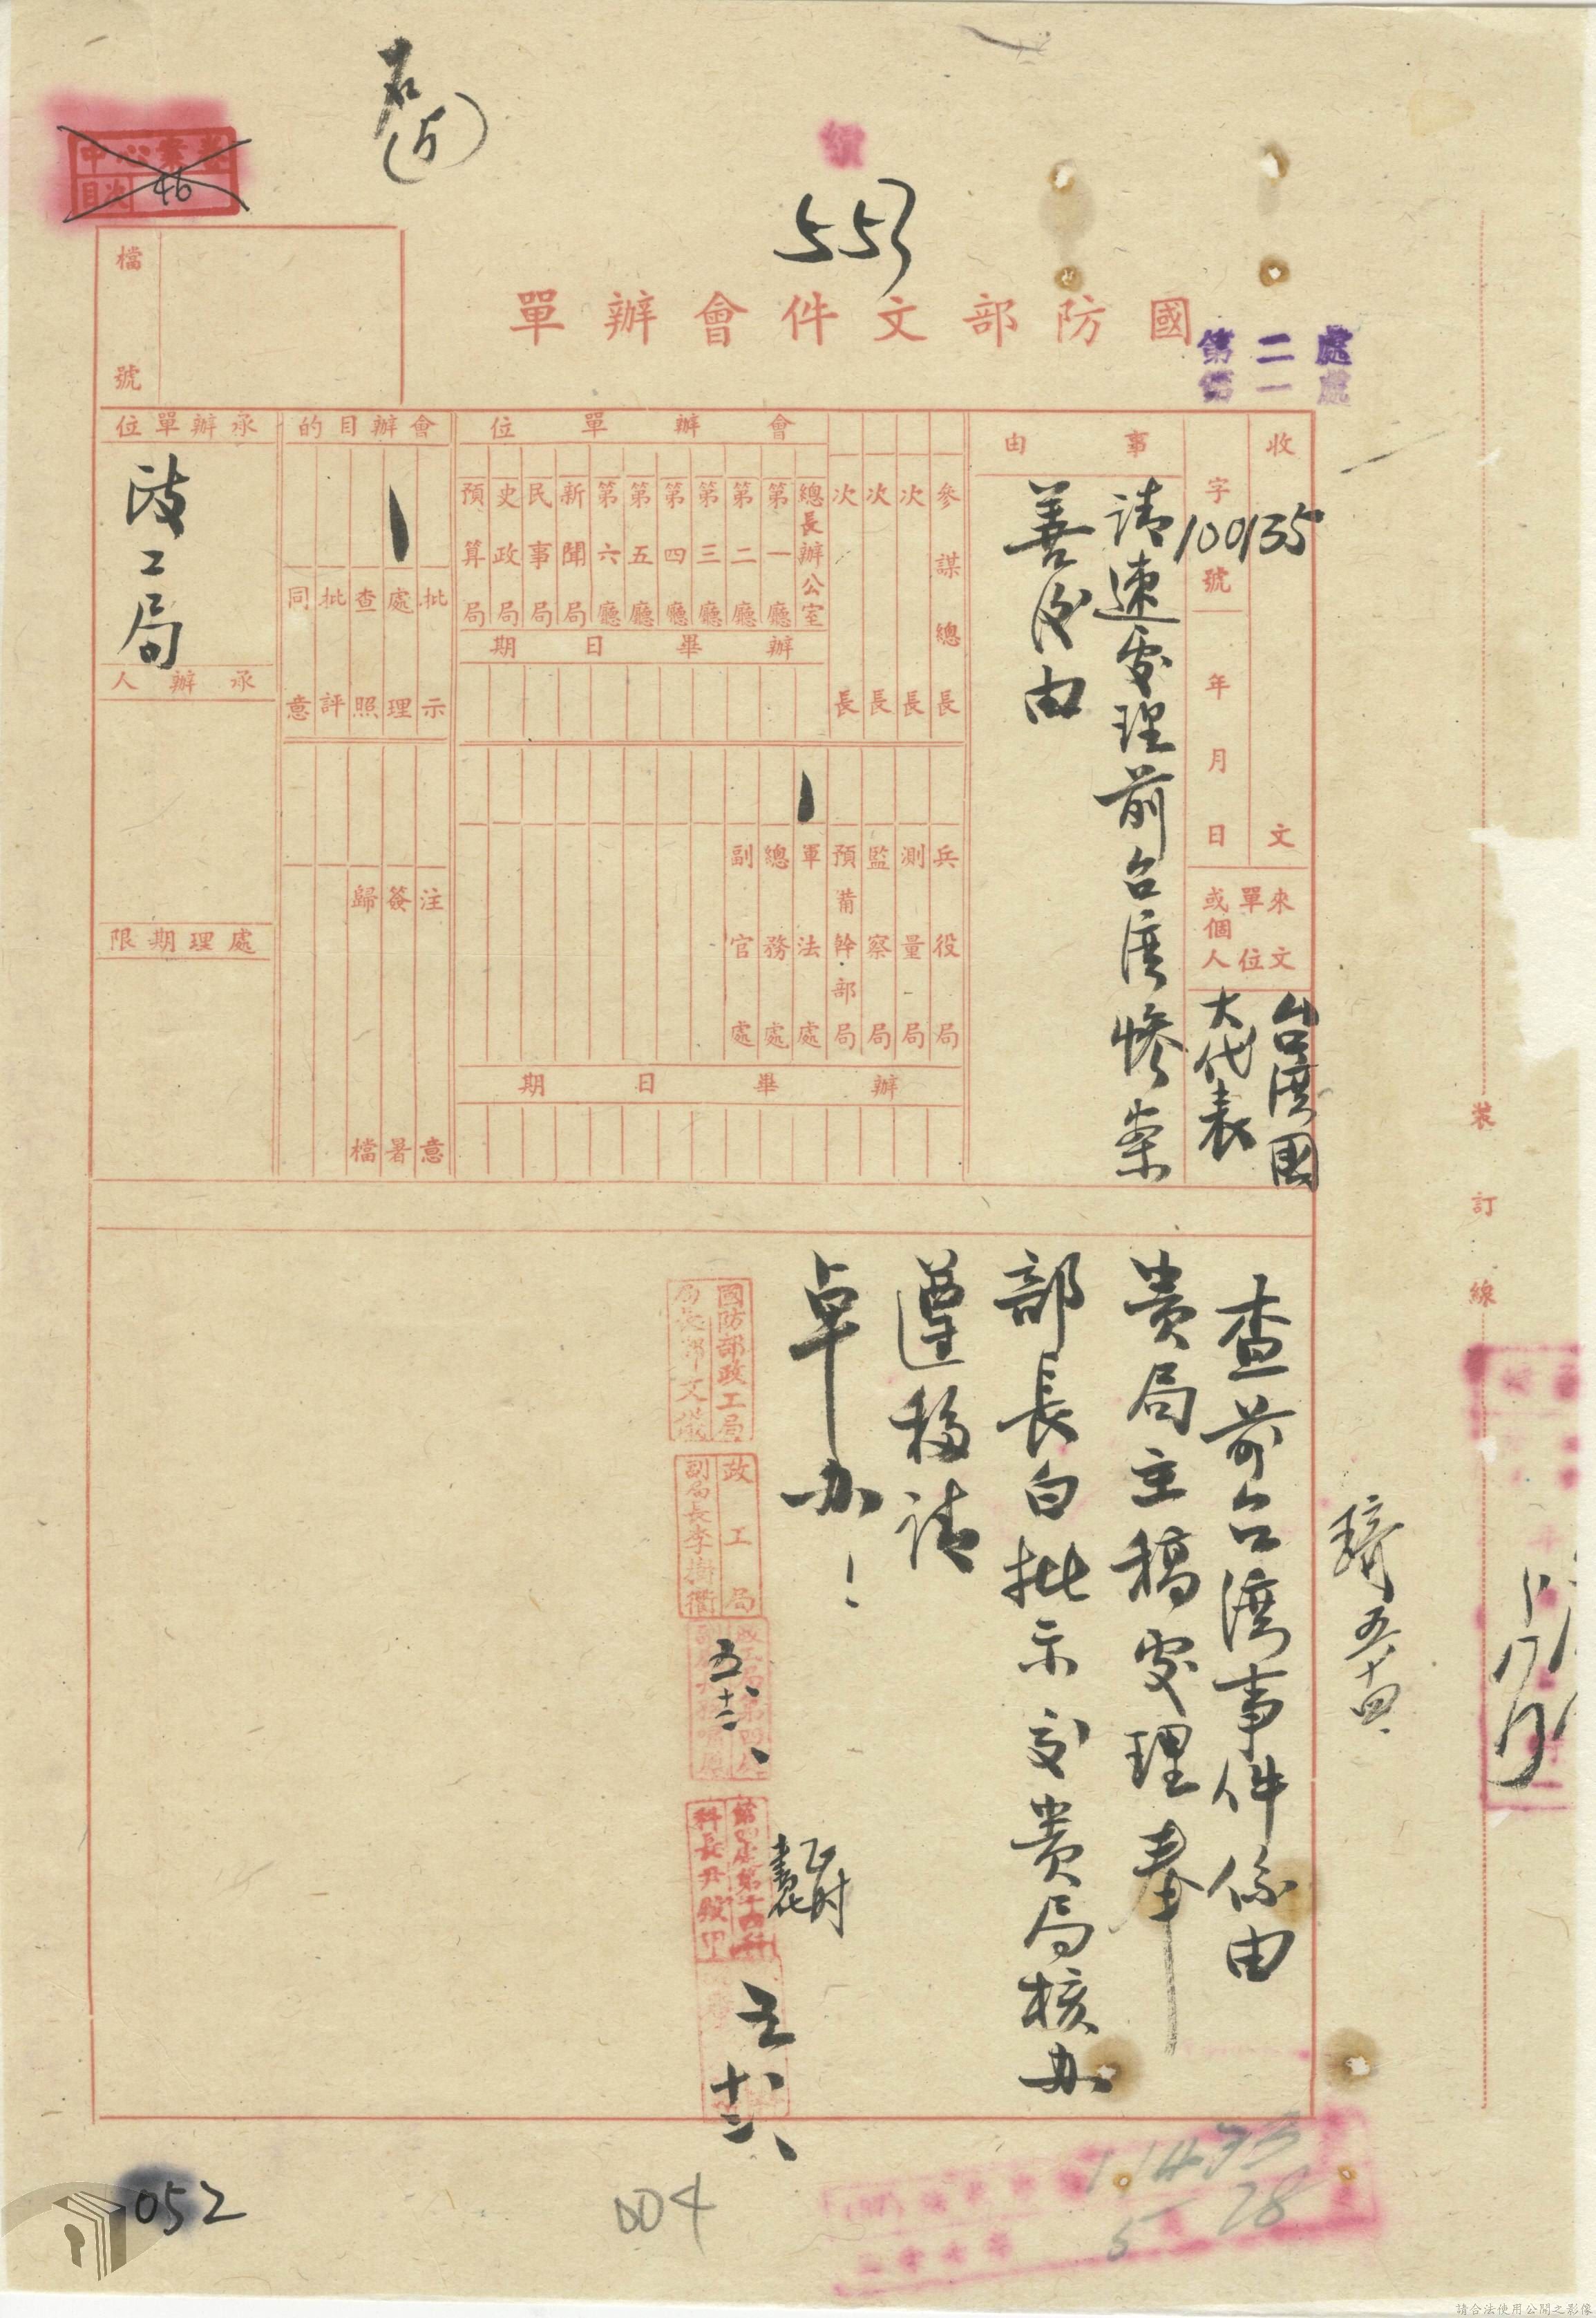 中心業卷
目次 46
553
國防部文件會辦單
第二處
第一處
檔號
收文
字100135號
年月日
來文單位或個人
台灣國大代表
事由
請速處理前台灣慘案
善後由
參謀總長
次長
次長
次長
會辦單位
總長辦公室
第一廳
第二廳
第三廳
第四廳
第五廳
第六廳
新聞局
民事局
史政局
預算局
辦畢日期
兵役局
測量局
監察局
預備幹部局
軍法處
總務處
副官處
辦畢日期
會辦目的
批示
處理
查照
批評
同意
注意
簽署
歸檔
承辦單位
政工局
承辦人
處理期限
查前台灣事件係由
貴局主稿處理奉
部長白批示交貴局核办
遵移請
卓办!
國防部政工局
局長鄧文儀
政工局
副局長李樹衢
五十二、
第四處第十四科
科長尹殿甲
五十二、
五十四、
裝訂線
11433
5 28
052
004
請合法使用公開之影像